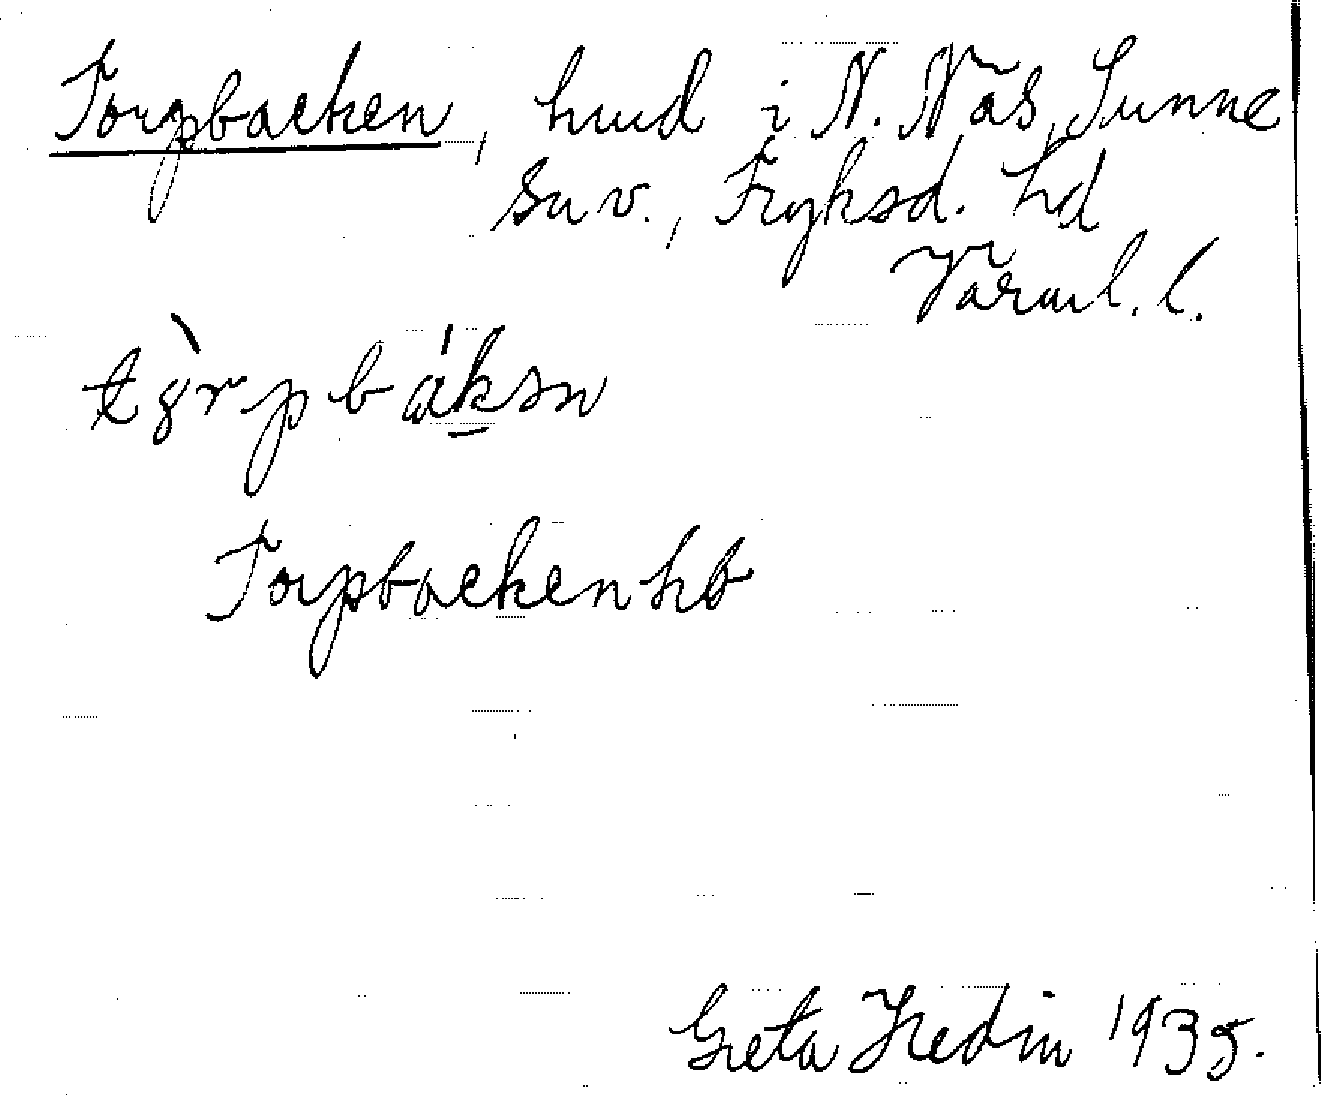 Torpbacken, hmd i N. Näs, Sunne
sn v., Fryksd. hd
Värml. l.
tȣ̀rpbáksn
Torpbacken hb
Greta Hedin 1935.